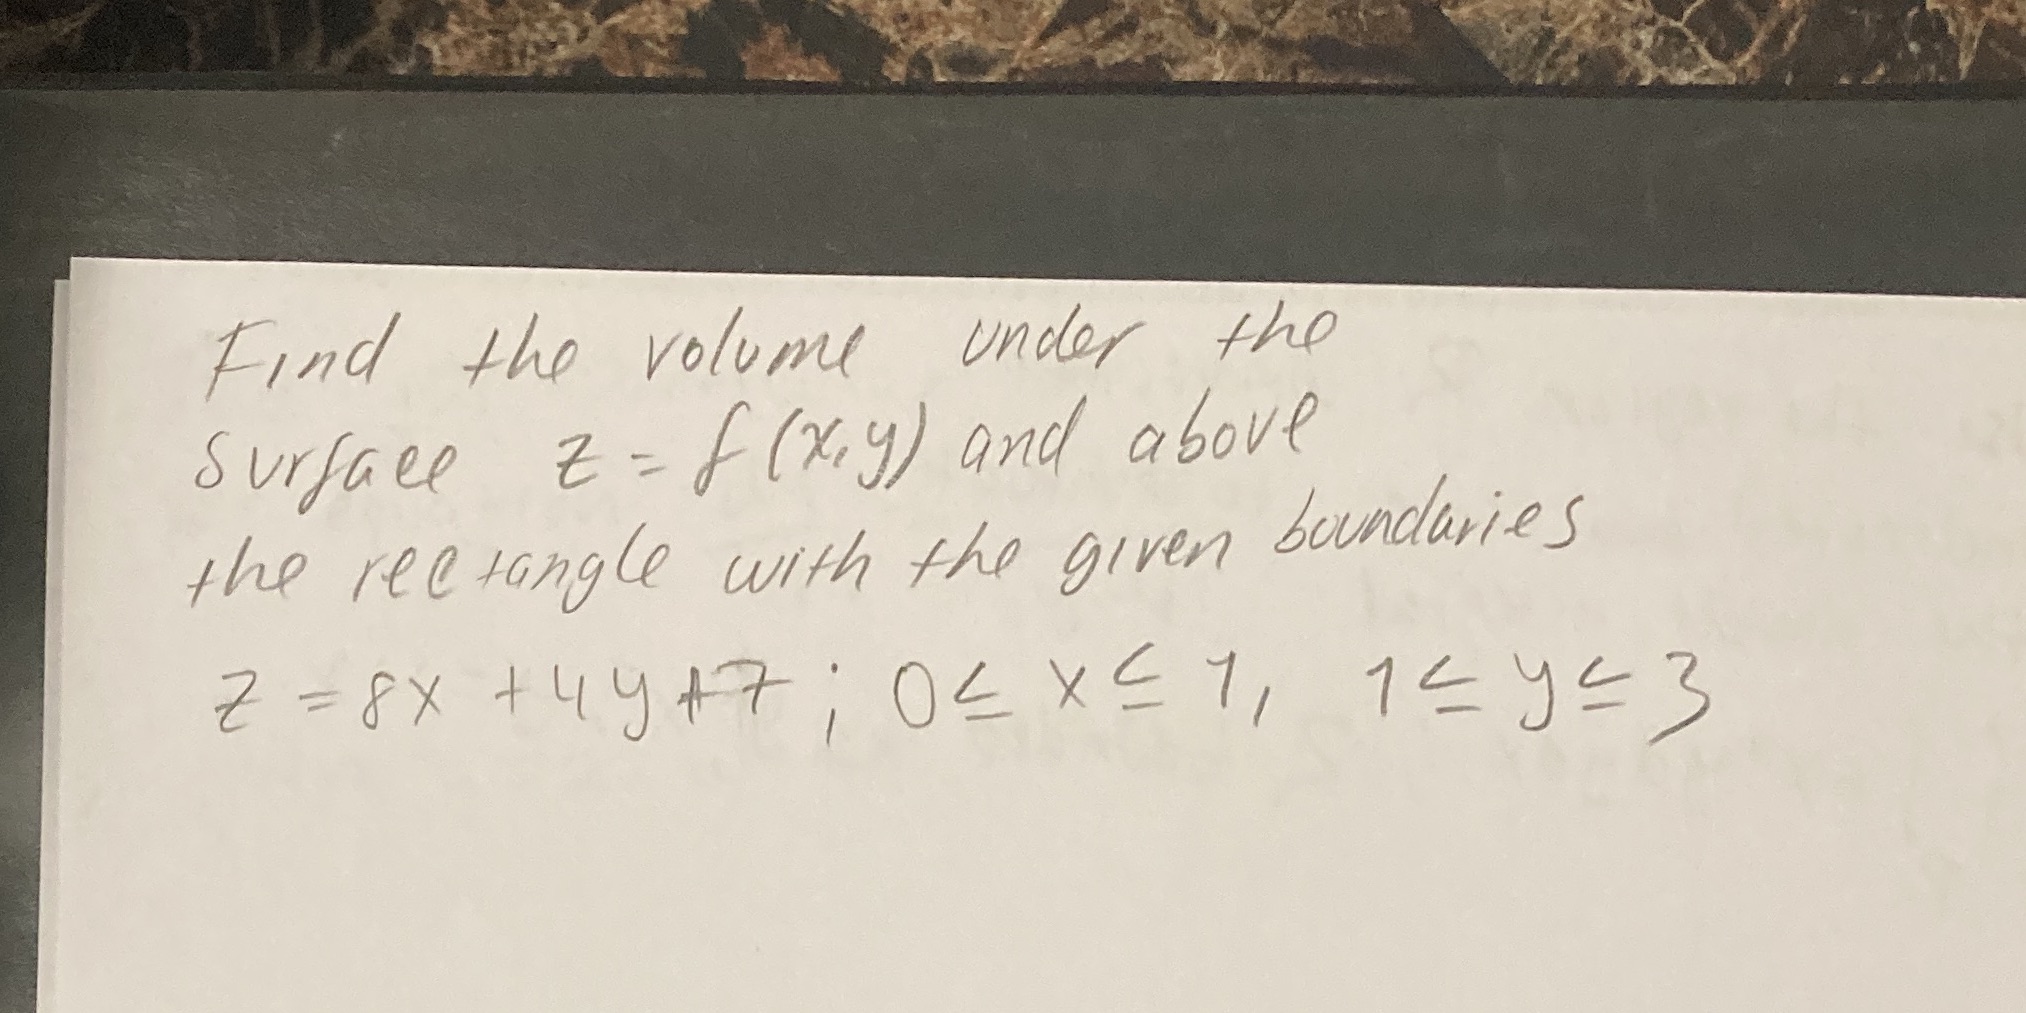 Find the volume under the
surface z = f(x,y) and above
the rectangle with the given boundaries
z = 8x + 4y + 7 ; 0 ≤ x ≤ 1, 1 ≤ y ≤ 3